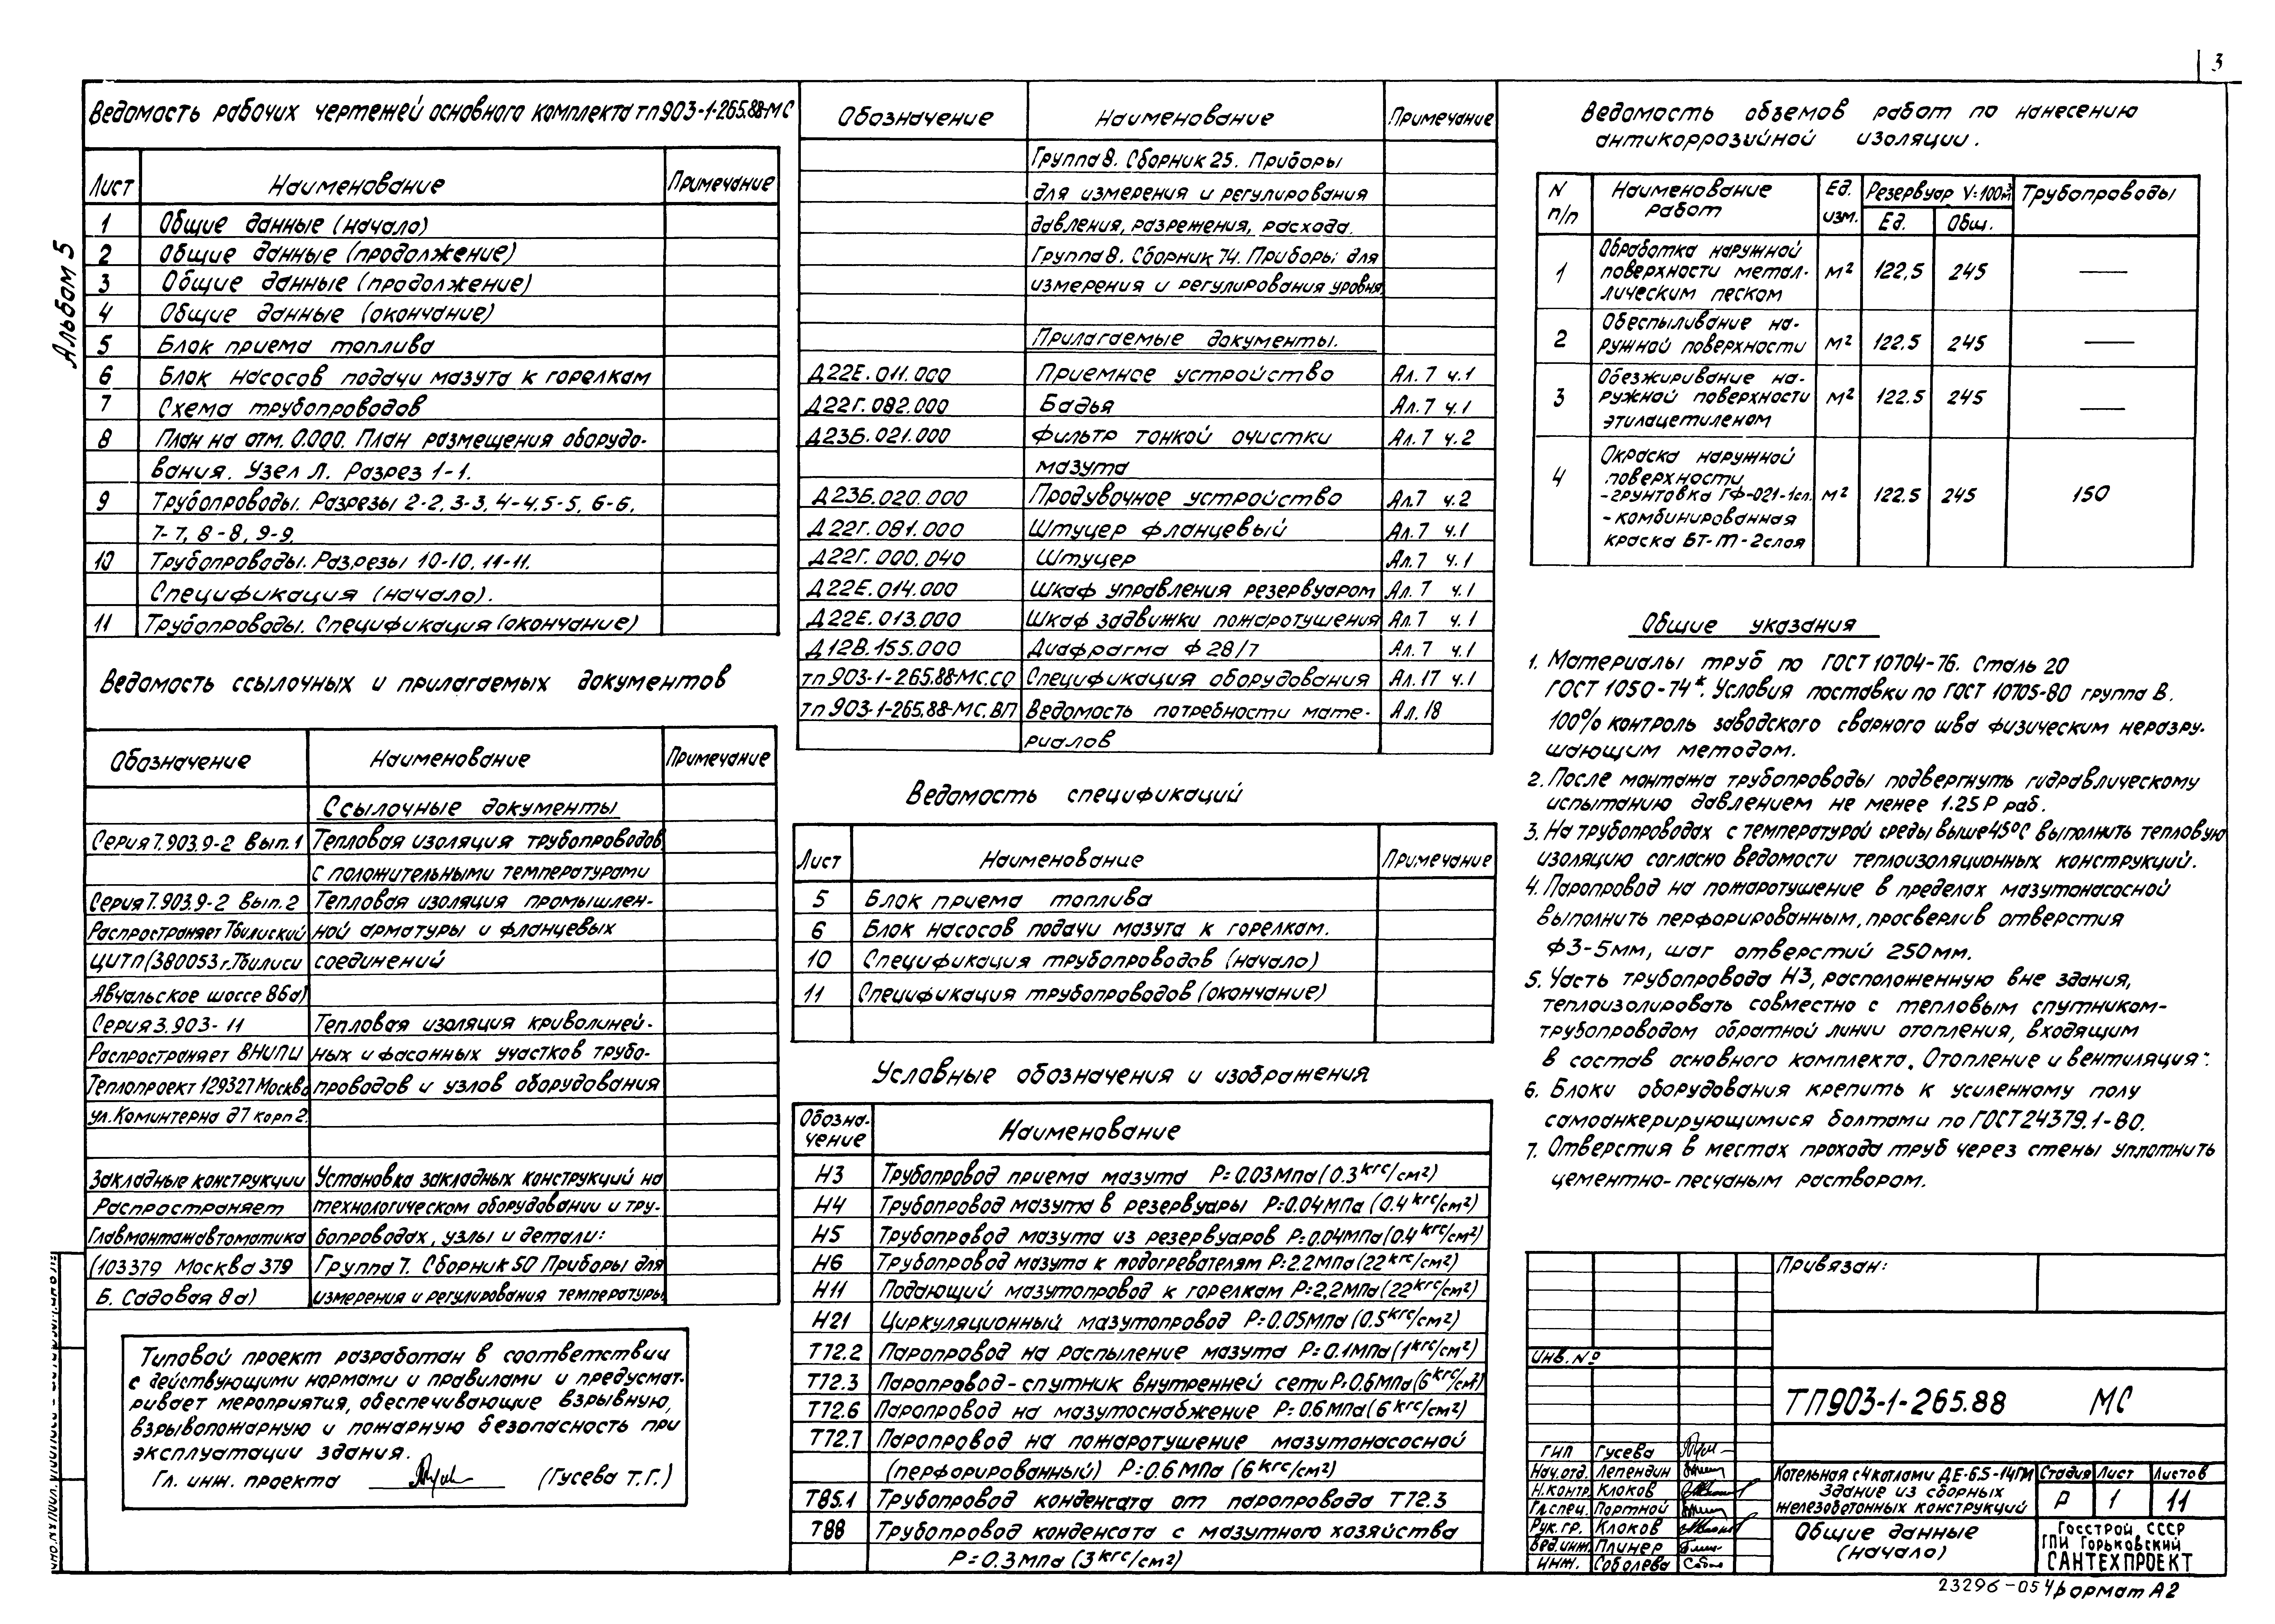 3
Альбом 5
Ведомость рабочих чертежей основного комплекта тп903-1-265.88-МС
Лист Наименование Примечание
1 Общие данные (начало)
2 Общие данные (продолжение)
3 Общие данные (продолжение)
4 Общие данные (окончание)
5 Блок приема топлива
6 Блок насосов подачи мазута к горелкам
7 Схема трубопроводов
8 План на отм. 0.000. План размещения оборудо-
вания. Узел Л. Разрез 1-1.
9 Трубопроводы. Разрезы 2-2, 3-3, 4-4, 5-5, 6-6,
7-7, 8-8, 9-9.
10 Трубопроводы. Разрезы 10-10, 11-11.
Спецификация (начало).
11 Трубопроводы. Спецификация (окончание)
Ведомость ссылочных и прилагаемых документов
Обозначение Наименование Примечание
Ссылочные документы
Серия 7.903.9-2 Вып.1 Тепловая изоляция трубопроводов
с положительными температурами
Серия 7.903.9-2 Вып.2 Тепловая изоляция промышлен-
Распространяет Тбилиский ной арматуры и фланцевых
ЦИТП (380053 г. Тбилиси соединений
Авчальское шоссе 86а)
Серия 3.903-11 Тепловая изоляция криволиней-
Распространяет ВНИПИ ных и фасонных участков трубо-
Теплопроект 129327 Москва проводов и узлов оборудования
ул. Коминтерна д7 корп 2.
Закладные конструкции Установка закладных конструкций на
Распространяет технологическом оборудовании и тру-
Главмонтажавтоматика бопроводах, узлы и детали:
(103379 Москва 379 Группа 7. Сборник 50 Приборы для
Б. Садовая 8а) измерения и регулирования температуры
Типовой проект разработан в соответствии
с действующими нормами и правилами и предусмат-
ривает мероприятия, обеспечивающие взрывную,
взрывопожарную и пожарную безопасность при
эксплуатации здания.
Гл. инж. проекта (Гусева Т.Г.)
Обозначение Наименование Примечание
Группа 8. Сборник 25. Приборы
для измерения и регулирования
давления, разрежения, расхода.
Группа 8. Сборник 74. Приборы для
измерения и регулирования уровня.
Прилагаемые документы.
Д22Е.011.000 Приемное устройство Ал. 7 ч.1
Д22Г.082.000 Бадья Ал. 7 ч.1
Д23Б.021.000 Фильтр тонкой очистки Ал. 7 ч.2
мазута
Д23Б.020.000 Продувочное устройство Ал.7 ч.2
Д22Г.081.000 Штуцер фланцевый Ал. 7 ч.1
Д22Г.000.040 Штуцер Ал.7 ч.1
Д22Е.014.000 Шкаф управления резервуаром Ал. 7 ч.1
Д22Е.013.000 Шкаф задвижки пожаротушения Ал. 7 ч.1
Д12В.155.000 Диафрагма Ф 28/7 Ал. 7 ч.1
тп 903-1-265.88-МС.СО Спецификация оборудования Ал. 17 ч.1
тп 903-1-265.88-МС.ВП Ведомость потребности мате- Ал. 18
риалов
Ведомость спецификаций
Лист Наименование Примечание
5 Блок приема топлива
6 Блок насосов подачи мазута к горелкам.
10 Спецификация трубопроводов (начало)
11 Спецификация трубопроводов (окончание)
Условные обозначения и изображения
Обозна-
чение Наименование
Н3 Трубопровод приема мазута Р=0.03Мпа (0.3 кгс/см²)
Н4 Трубопровод мазута в резервуары Р=0.04МПа (0.4 кгс/см²)
Н5 Трубопровод мазута из резервуаров Р=0.04МПа (0.4 кгс/см²)
Н6 Трубопровод мазута к подогревателям Р=2.2МПа (22 кгс/см²)
Н11 Подающий мазутопровод к горелкам Р=2,2МПа (22 кгс/см²)
Н21 Циркуляционный мазутопровод Р=0.05МПа (0.5 кгс/см²)
Т72.2 Паропровод на распыление мазута Р=0.1МПа (1 кгс/см²)
Т72.3 Паропровод-спутник внутренней сети Р=0.6МПа (6 кгс/см²)
Т72.6 Паропровод на мазутоснабжение Р=0.6МПа (6 кгс/см²)
Т72.7 Паропровод на пожаротушение мазутонасосной
(перфорированный) Р=0.6МПа (6 кгс/см²)
Т85.1 Трубопровод конденсата от паропровода Т72.3
Т88 Трубопровод конденсата с мазутного хозяйства
Р=0.3Мпа (3 кгс/см²)
Ведомость обземов работ по нанесению
антикоррозийной изоляции.
N п/п Наименование работ Ед. изм. Резервуар V=100м³ Трубопроводы
Ед. Общ.
1 Обработка наружной
поверхности метал- м² 122,5 245 —
лическим песком
2 Обеспыливание на-
ружной поверхности м² 122.5 245 —
3 Обезжиривание на-
ружной поверхности м² 122.5 245 —
этилацетиленом
4 Окраска наружной
поверхности
-грунтовка ГФ-021-1сл. м² 122.5 245 150
-комбинированная
краска БТ-177-2слоя
Общие указания
1. Материалы труб по ГОСТ 10704-76. Сталь 20
ГОСТ 1050-74*. Условия поставки по ГОСТ 10705-80 группа В.
100% контроль заводского сварного шва физическим неразру-
шающим методом.
2. После монтажа трубопроводы подвергнуть гидравлическому
испытанию давлением не менее 1.25 Р раб.
3. На трубопроводах с температурой среды выше 45°С выполнить тепловую
изоляцию согласно ведомости теплоизоляционных конструкций.
4. Паропровод на пожаротушение в пределах мазутонасосной
выполнить перфорированным, просверлив отверстия
Ф3-5мм, шаг отверстий 250мм.
5. Часть трубопровода Н3, расположенную вне здания,
теплоизолировать совместно с тепловым спутником-
трубопроводом обратной линии отопления, входящим
в состав основного комплекта „Отопление и вентиляция".
6. Блоки оборудования крепить к усиленному полу
самоанкерирующимися болтами по ГОСТ 24379.1-80.
7. Отверстия в местах прохода труб через стены уплотнить
цементно-песчаным раствором.
Привязан:
Инв. №
ТП903-1-265.88 МС
ГИП Гусева
Нач.отд. Лепендин
Н.контр. Клоков
Гл.спец. Портной
Рук.гр. Клоков
Вед.инж. Плинер
Инж. Соболева
Котельная с 4 котлами ДЕ-6,5-14ГМ
Здание из сборных
железобетонных конструкций
Стадия Лист Листов
Р 1 11
Общие данные
(начало)
Госстрой СССР
ГПИ Горьковский
САНТЕХПРОЕКТ
23296-05 4 Формат А2